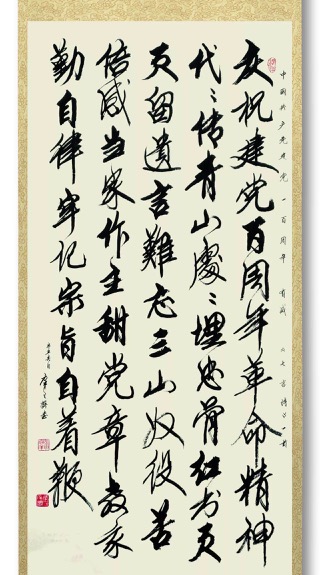 中国共产党建党一百周年有感
庆祝建党百周年革命精神
代代传青山处处埋忠骨红书页
页留遗言难忘三山奴役苦
倍感当家作主甜党章教系
勤自律牢记宗旨自着鞭